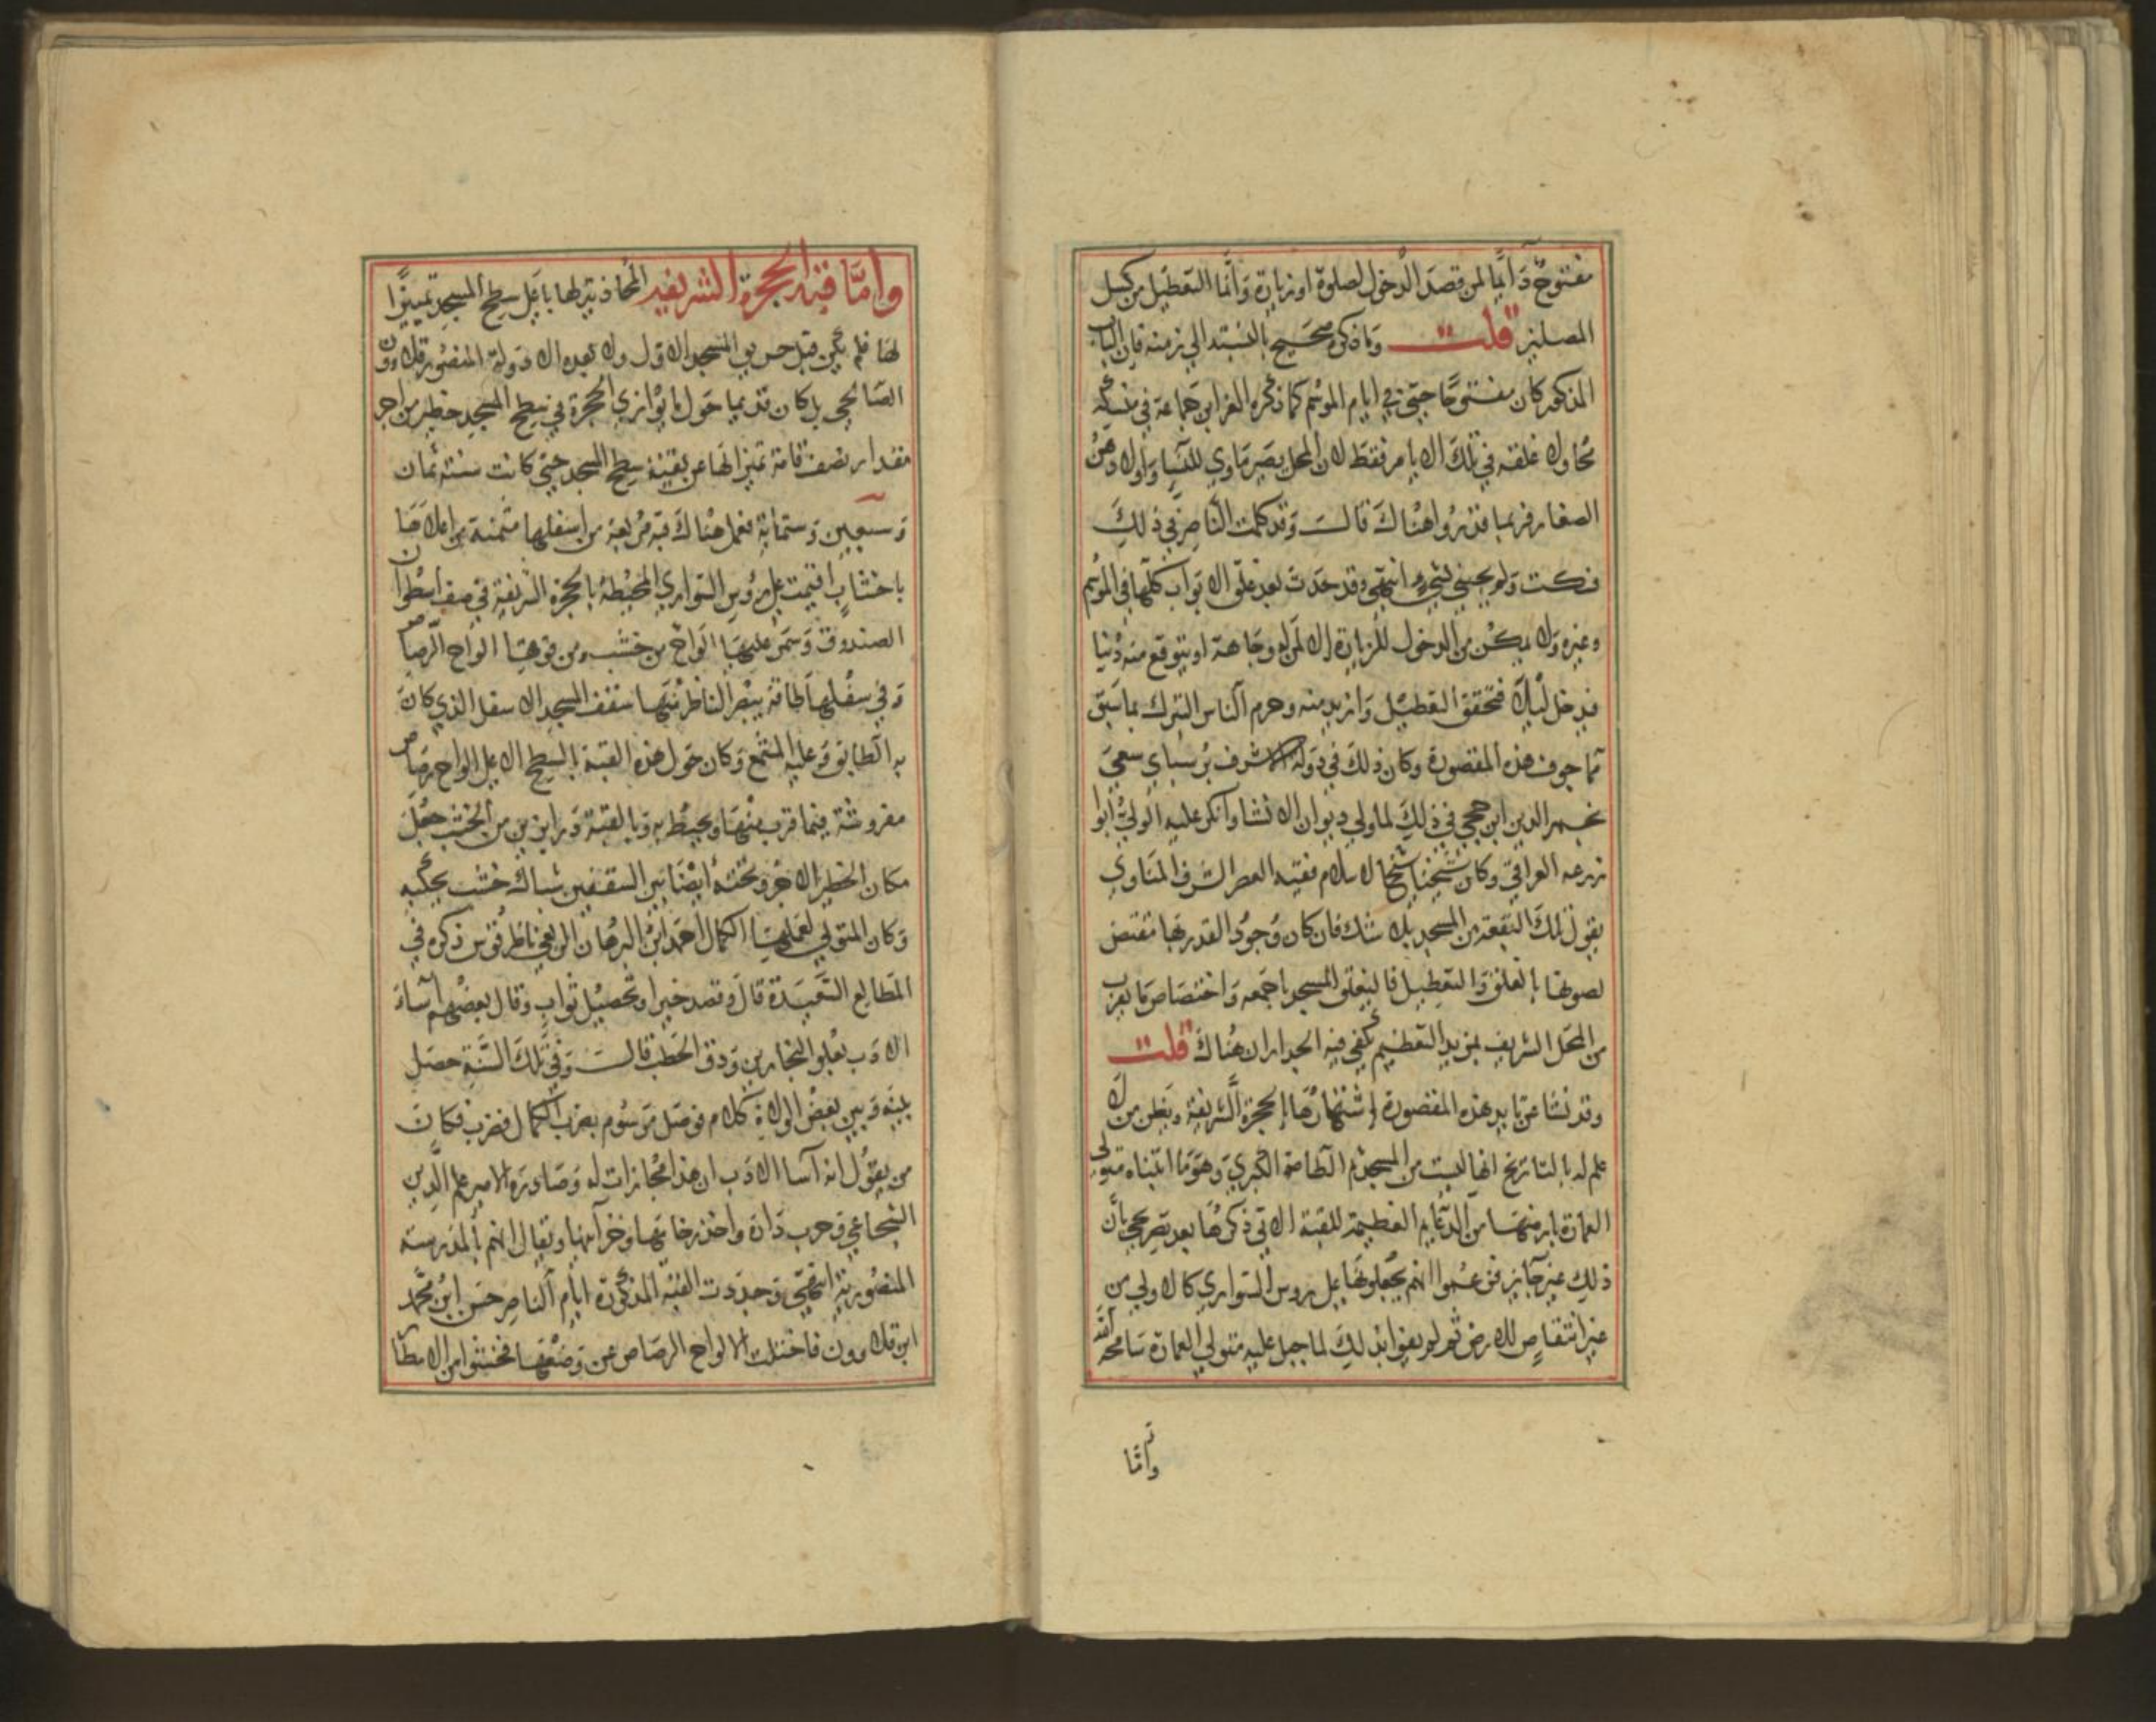 مفتوح دَائمًا لمن قصدَ الدخول لصلوة او زيارة وَانما التعطيل من كسل
المصلين قلت وَما ذكره صحَيح بالنسبة الي زمنه فان الباب
المذكور كان مفتوحًا حتي في ايام الموسم كما ذكره العز ابن جماعة في منسكه
محاولا غلقه في تلكَ الايام فقط لان المحل يصير مَاوي للنسا وَاولادهن
الصغار فربما قذروا هناكَ قالت وَقد كلمت الناصر في ذلكَ
فسكت وَلم يجبني بشيء انتهي وقد حَدث بعد غلق الابواب كلها في الموسم
وغيره وَلا يمكن من الدخول للزيارة الا لمن له وجَاهة او يتوقع منه دُنيا
فيدخل ليلا فتحقق التعطيل وَازيد منه وحرم الناس التبرك بما سَبق
مما جوف هذه المقصورة وكان ذلكَ في دَولة الاشرف برسباي سعيَ
نجم الدين ابن حجي في ذلكَ لما ولي ديوان الانشا وَانكر عليه الولي ابوا
زرعه العراقي وكان شيخنا شيخ الاسلام فقيه العصر الشرف المنَاوي
يقول تلكَ البقعة من المسجد بلا شك فان كان وُجود القدر بهَا مقتض
لصونها بالغلق وَالتعطيل فاليغلق المسجد باجمعه وَاختصَاص مَا يقرب
من المحَل الشريف بمزيد التعظيم يكفي فيه الجداران هُناكَ قلت
وقد نشا عن تابيد هذه المقصورة اشتهارُهَا بالحجرة الشريفة ويظن من لا
علم له بالتاريخ انها ليست من المسجد ثم الطامة الكبري وَهو مَا ابتناه متولي
العمارة بارضهَا من الدعَايم العظيمة للقبة الاتي ذكرهَا بعد تصريحي بأن
ذلك غير جَايز فزعموا انهم يجعلونهَا علي روس السَواري كالاولي من
غير انتقاص للارض ثم لم يعوا بذلكَ لما جبل عليه متولي العمارة سَامحه الله
وَامَّا
وامَّا قبة الحجرة الشريفه المحاذية لها باعَلي سطح المسجد تمييزًا
لهَا فلم تكن قبل حريق المسجد الاول ولا بعده الا دَولة المنصُور قلاوون
الصَالحي بل كان قديما حَول مَا يُوازي الحجرة في سطح المسجد حظير من اجر
مقدار نصف قامة تمييزا لهَا عن بقية سطح المسجد حتي كانت سنة ثمان
وَسَبعين وَستمائة فعمل هُناكَ قبة مربعة من اسفلها مثمنة من اعلاهَا
باخشاب اقيمت علي رُؤس السَواري المحيطة بالحجرة الشريفة في صف اسطوان
الصندوق وَسَمر عليهَا الوَاح من خشب ومن فوقهَا الواح الرصاص
وَفي سفلهَا طاقة يبصر الناظر منهَا سقف المسجد الاسفل الذي كانَ
به الطابق وَعليه المشمع وَكان حَول هذه القبة بالسطح الاعلي الواح رصَاص
مفروشة فيما قرب منهَا ويحيط به وَبالقبة دَرابزين من الخشب جعل
مكان الحظير الاجُر وَتحته أيضَا بين السقفين شباك خشب يحكيه
وَكان المتولي لعملهَا الكمال احمَد ابن البرهَان الربعي ناظر قوس ذكره في
الطَالع السَّعيد قال وقصد خيرا وتحصيل ثواب وقال بعضُهم اسَاء
الادَب بعلو النجارين وَدق الحطب قالَ وَفي تلكَ السَنة حصَل
بينه وَبين بعض الولاة كلام فوصَل مَرسُوم بضرب الكمال فضرب فكانَ
من يقول انه اسا الادَب ان هذا مجازات له وَصَادره الامير علم الدين
الشجَاعي وَخرب دَاره وَاخذ رخامهَا وخزاينهَا ويقال انهم بالمدرسة
المنصُورية انتهي وَجدّدت القبة المذكورة ايام الناصر حسَن ابن محمد
ابن قلاوون فاختلت الالواح الرصَاص عن وَضعهَا فخشوا من الامطار